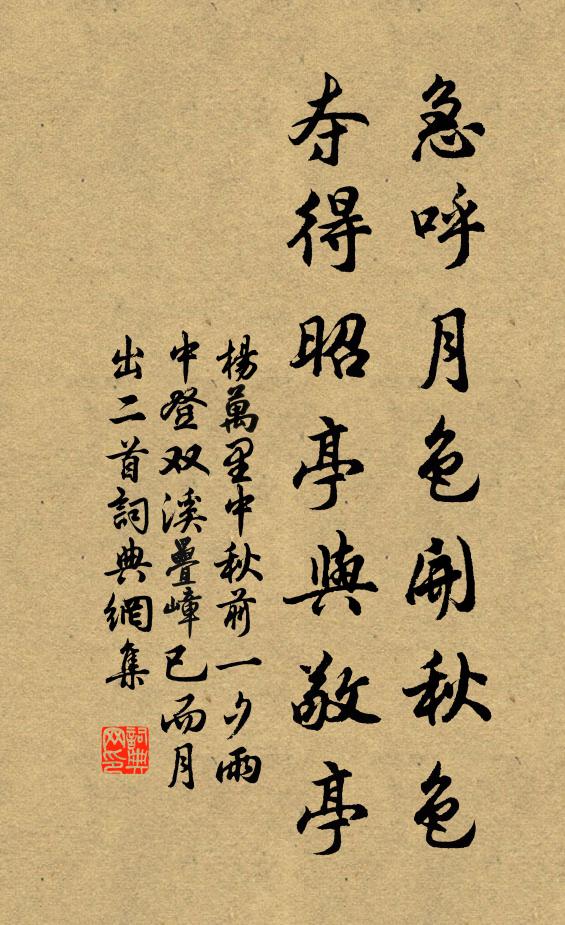 急呼月色開秋色
夺得昭亭與敬亭
楊萬里中秋前一夕雨
中登双溪疊嶂已而月
出二首詞典網集
詞典
网印